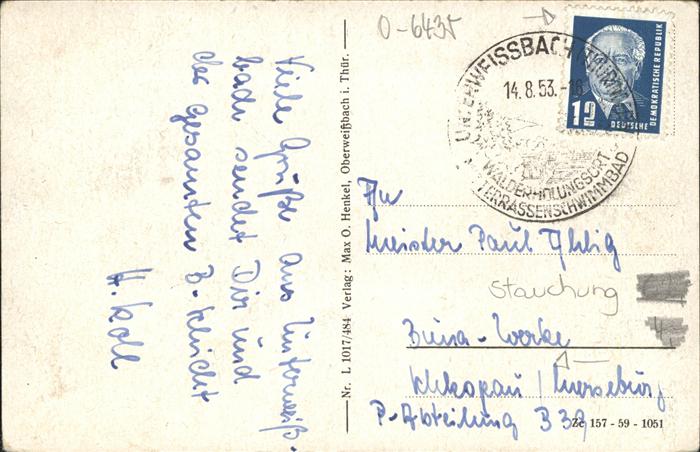 Viele Grüße aus Unterweiß-
bach sendet Dir und
der gesamten B-Schicht
H. Koll
Nr. L 1017/484 Verlag: Max O. Henkel, Oberweißbach i. Thür.
0-6435
UNTERWEISSBACH
14.8.53.-16
WALDERHOLUNGSORT
TERRASSENSCHWIMMBAD
12
DEUTSCHE
DEMOKRATISCHE REPUBLIK
An
Meister Paul
Stauchung
Buna-Werke
Schkopau / Merseburg
P-Abteilung B 39
Ze 157 - 59 - 1051